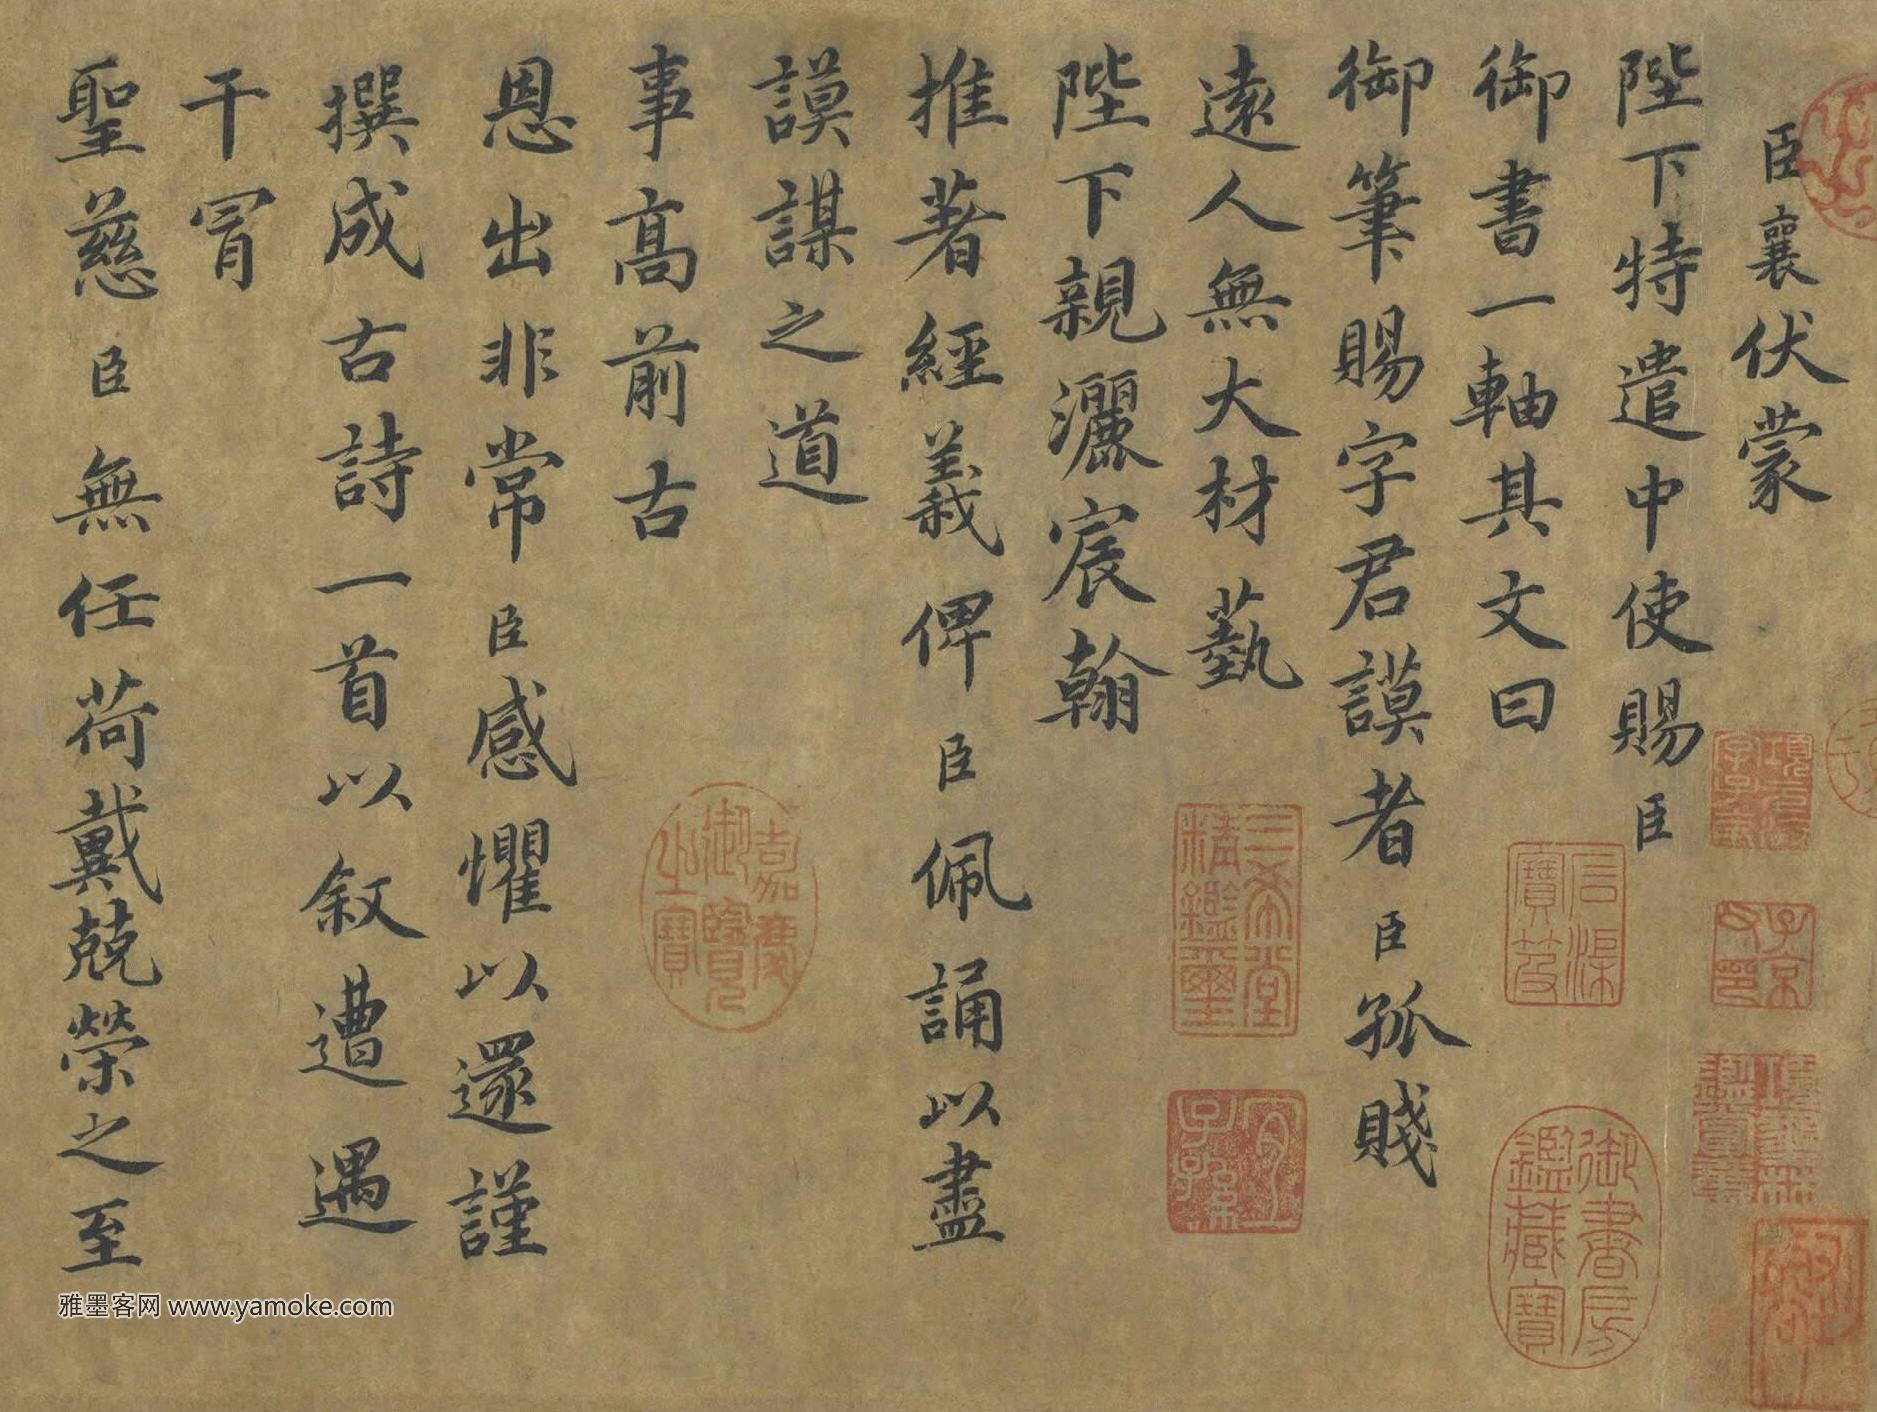 臣襄伏蒙
陛下特遣中使賜臣
御書一軸其文曰
御筆賜字君謨者臣孤賤
遠人無大材藝
陛下親灑宸翰
推著經義俾臣佩誦以盡
謨謀之道
事高前古
恩出非常臣感懼以還謹
撰成古詩一首以敘遭遇
干冒
聖慈臣無任荷戴兢榮之至
三希堂精鑑璽
宜子孫
嘉慶御覽之寶
石渠寶笈
御書房鑑藏寶
雅墨客网 www.yamoke.com